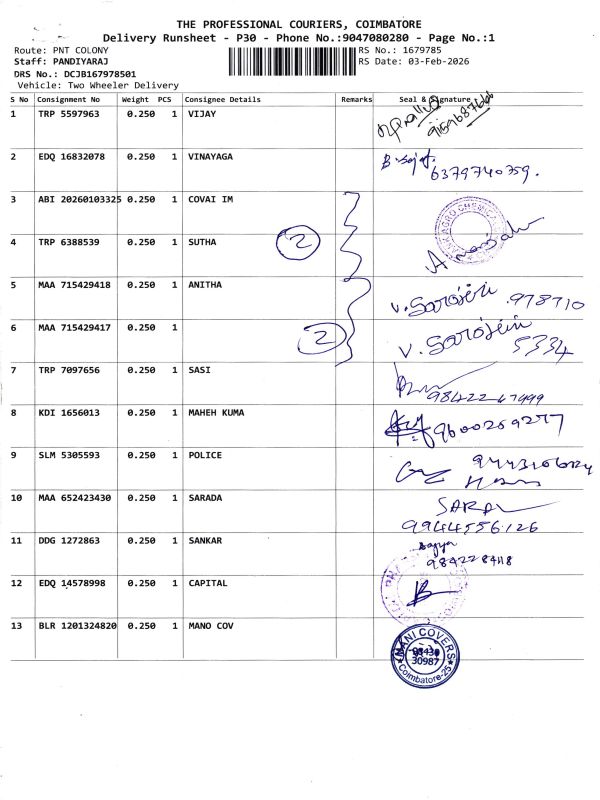 THE PROFESSIONAL COURIERS, COIMBATORE
Delivery Runsheet - P30 - Phone No.:9047080280 - Page No.:1
Route: PNT COLONY RS No.: 1679785
Staff: PANDIYARAJ RS Date: 03-Feb-2026
DRS No.: DCJB167978501
Vehicle: Two Wheeler Delivery
S No Consignment No Weight PCS Consignee Details Remarks Seal & Signature
1 TRP 5597963 0.250 1 VIJAY
2 EDQ 16832078 0.250 1 VINAYAGA
6379740759.
3 ABI 20260103325 0.250 1 COVAI IM
4 TRP 6388539 0.250 1 SUTHA 2
5 MAA 715429418 0.250 1 ANITHA V. Sarojini 978710
6 MAA 715429417 0.250 1 2 V. Sarojini 5334
7 TRP 7097656 0.250 1 SASI
8 KDI 1656013 0.250 1 MAHEH KUMA 9600269277
9 SLM 5305593 0.250 1 POLICE
10 MAA 652423430 0.250 1 SARADA
9944556126
11 DDG 1272863 0.250 1 SANKAR
12 EDQ 14578998 0.250 1 CAPITAL
13 BLR 1201324820 0.250 1 MANO COV MANI COVERS
30987
Coimbatore-25